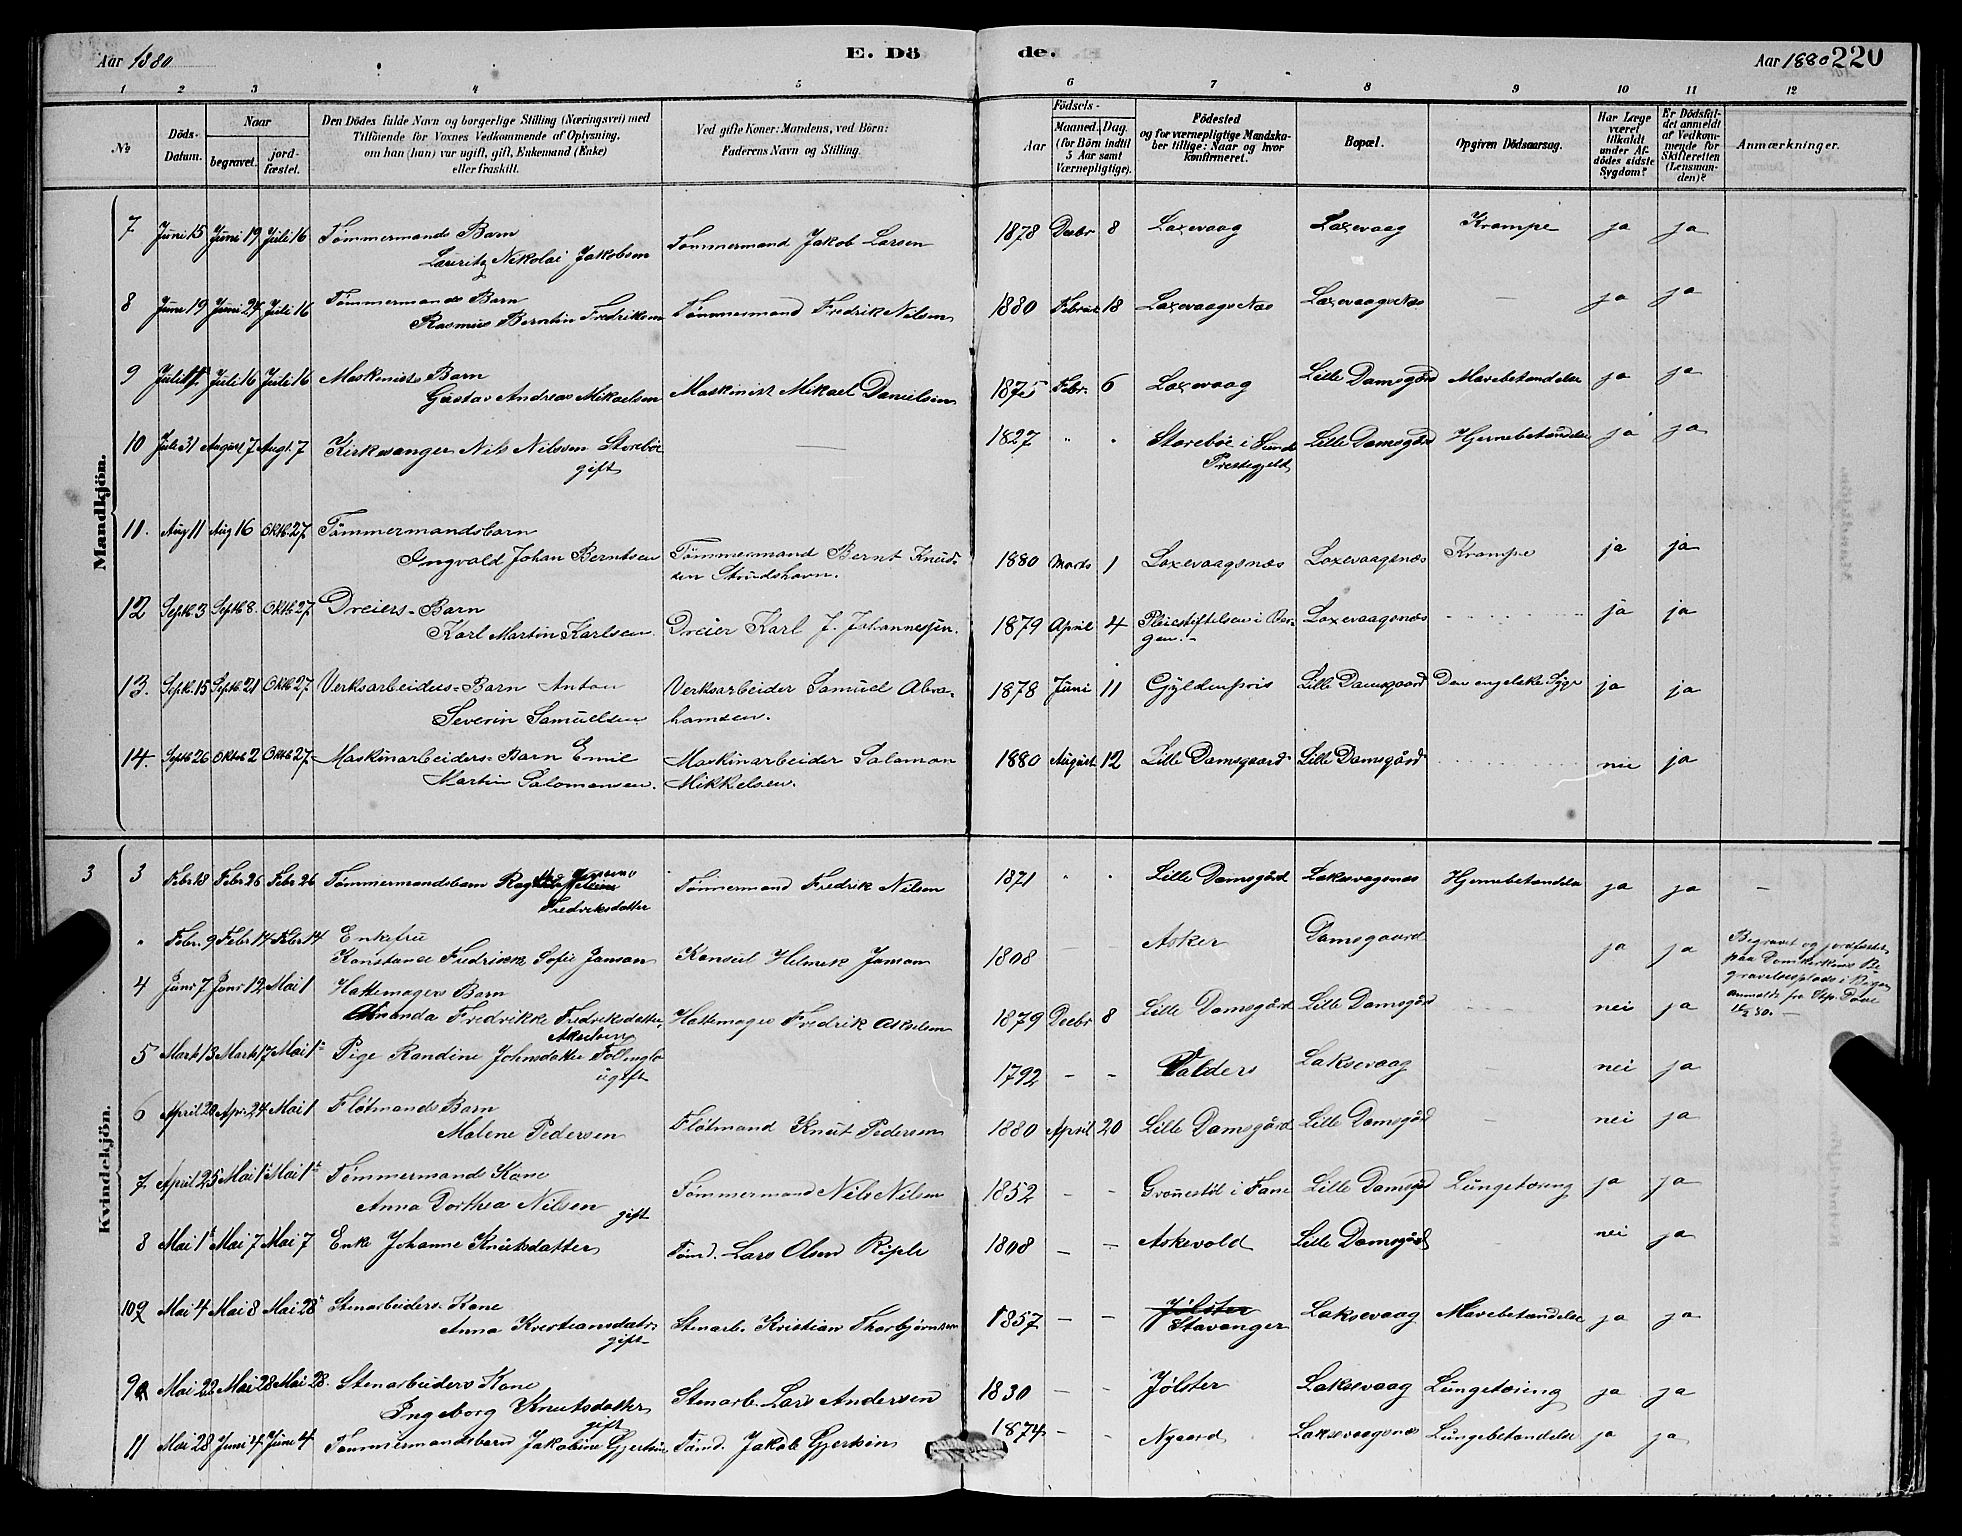 Aar 1880
E. Dö
de.
Aar 1880 220
1 2 3 4 5 6 7 8 9 10 11 12
No
Döds-
Datum.
Naar
begravet.
jord-
fæstet.
Den Dödes fulde Navn og borgerlige Stilling (Næringsvei) med
Tilföiende for Voxnes Vedkommende af Oplysning,
om han (hun) var ugift, gift, Enkemand (Enke)
eller fraskilt.
Ved gifte Koner: Mandens, ved Börn:
Faderens Navn og Stilling.
Födsels-
Aar
Maaned. Dag.
(for Börn indtil
5 Aar samt
Værnepligtige).
Födested
og for værnepligtige Mandska-
ber tillige: Naar og hvor
konfirmeret.
Bopæl.
Opgiven Dödsaarsag.
Har Læge
været
tilkaldt
under Af-
dödes sidste
Sygdom?
Er Dödsfal-
det anmeldt
af Vedkom-
mende for
Skifteretten
(Lensman-
den)?
Anmærkninger.
Mandkjön.
7 Juni 15 Juni 19 Juli 16 Tømmermands Barn
Lauritz Nikolai Jakobsen Tømmermand Jakob Larsen 1878 Decbr 8 Laxevaag Laxevaag Krampe ja ja
8 Juni 19 Juni 24 Juli 16 Tømmermands Barn
Rasmus Berntin Fredriksen Tømmermand Fredrik Nilsen 1880 Februar 18 Laxevaags Næs Laxevaags Næs - ja ja
9 Juli Juli 16 Juli 16 Maskinists Barn
Gustav Andreas Mikaelsen Maskinist Mikael Danielsen 1875 Febr. 6 Laxevaag Lille Damsgård Mavebetændelse ja ja
10 Juli 31 August 7 Augt. 7 Kirkesanger Nils Nilssen Storebøe
gift - 1827 " " Storebøe i Sunds
Prestegjeld Lille Damsgård Hjernebetændelse ja ja
11. Aug 11 Aug 16 Oktb. 27 Tømmermandsbarn
Ingvald Johan Berntsen Tømmermand Bernt Knud-
sen Strudshavn. 1880 Marts 1 Laxevaagsnæs Laxevaagsnæs Krampe ja ja
12 Septb. 3 Septb 8. Oktb 27. Dreiers-Barn
Karl Martin Karlsen. Dreier Karl J. Johannessen. 1879 April 4 Pleiestiftelsen i Ber-
gen.- Laxevaagsnæs ja ja
13. Septb. 15 Septb. 21 Oktb. 27. Verksarbeiders-Barn Anton
Severin Samuelsen Verksarbeider Samuel Abra-
hamsen. 1878 Juni 11 Gyldenpris Lille Damsgaard Den engelske Syge ja ja
14. Septb 26 Oktob 2 Oktb 27. Maskinarbeiders-Barn Emil
Martin Salomonsen. Maskinarbeider Salomon
Mikkelsen. 1880 August 12 Lille Damsgaard Lille Damsgård nei ja
Kvindekjön.
3 3 Febr 18 Febr 26 Febr 26 Tømmermandsbarn
Fredriksdatter Tømmermand Fredrik Nilsen 1871 " " Lille Damsgård Laksevagsnæs Hjernebetændelse ja ja -
" Febr. 9 Febr 14 Febr 14 Enkefru
Konstance Fredrikke Sofie Janson Konsul Helmek Janson 1808 - - Asker Damsgaard ja ja Begravet og jordfæstet
paa Domkirkens Be
gravelsesplads i Bergen
anmeldt fra
4 Juni 7 Juni 12 Mai 1 Hattemagers Barn
Amanda Fredrikke Fredriksdatter Hattemager Fredrik Askelsen 1879 Decbr 8 Lille Damsgård Lille Damsgård nei ja
5 Mart 13 Mart 17 Mai 1 Pige Randine Johnsdatter
ugift 1792 - - Valders Laksevaag nei ja
6 April 20 Apr 24 Mai 1 Fløtmands Barn
Malene Pedersen Fløtmand Knut Pedersen 1880 April 20 Lille Damsgård Lille Damsgård - nei ja
7 April 25 Mai 1 Mai 1 Tømmermands Kone
Anna Dorthea Nilsen gift Tømmermand Nils Nilsen 1852 - - i Fane Lille Damsgd Lungetæring ja ja
8 Mai 1 Mai 7 Mai 7 Enke Johanne Knutsdatter Tømd. Lars Olsen Riple 1808 - - Askevold Lille Damsgård nei ja
10 Mai 4 Mai 8 Mai 28 Stenarbeiders Kone
Anna Kristiansdatr.
gift Stenarb. Kristian Thorbjørnsen 1857 - - Jølster
Stavanger Laksevaag Mavebetændelse ja ja
9 Mai 22 Mai 28 Mai 28. Stenarbeiders Kone
Ingeborg Knutsdatter
gift Stenarb. Lars Andersen 1830 - - Jølster Laksevaag Lungetæring ja ja
11 Mai 28 Juni 4 Juni 4 Tømmermandsbarn Jakobine Gjertsen Tømd. Jakob Gjertsen 1874 - - Nygaard Laksevaagsnæs Lungebetændelse ja ja